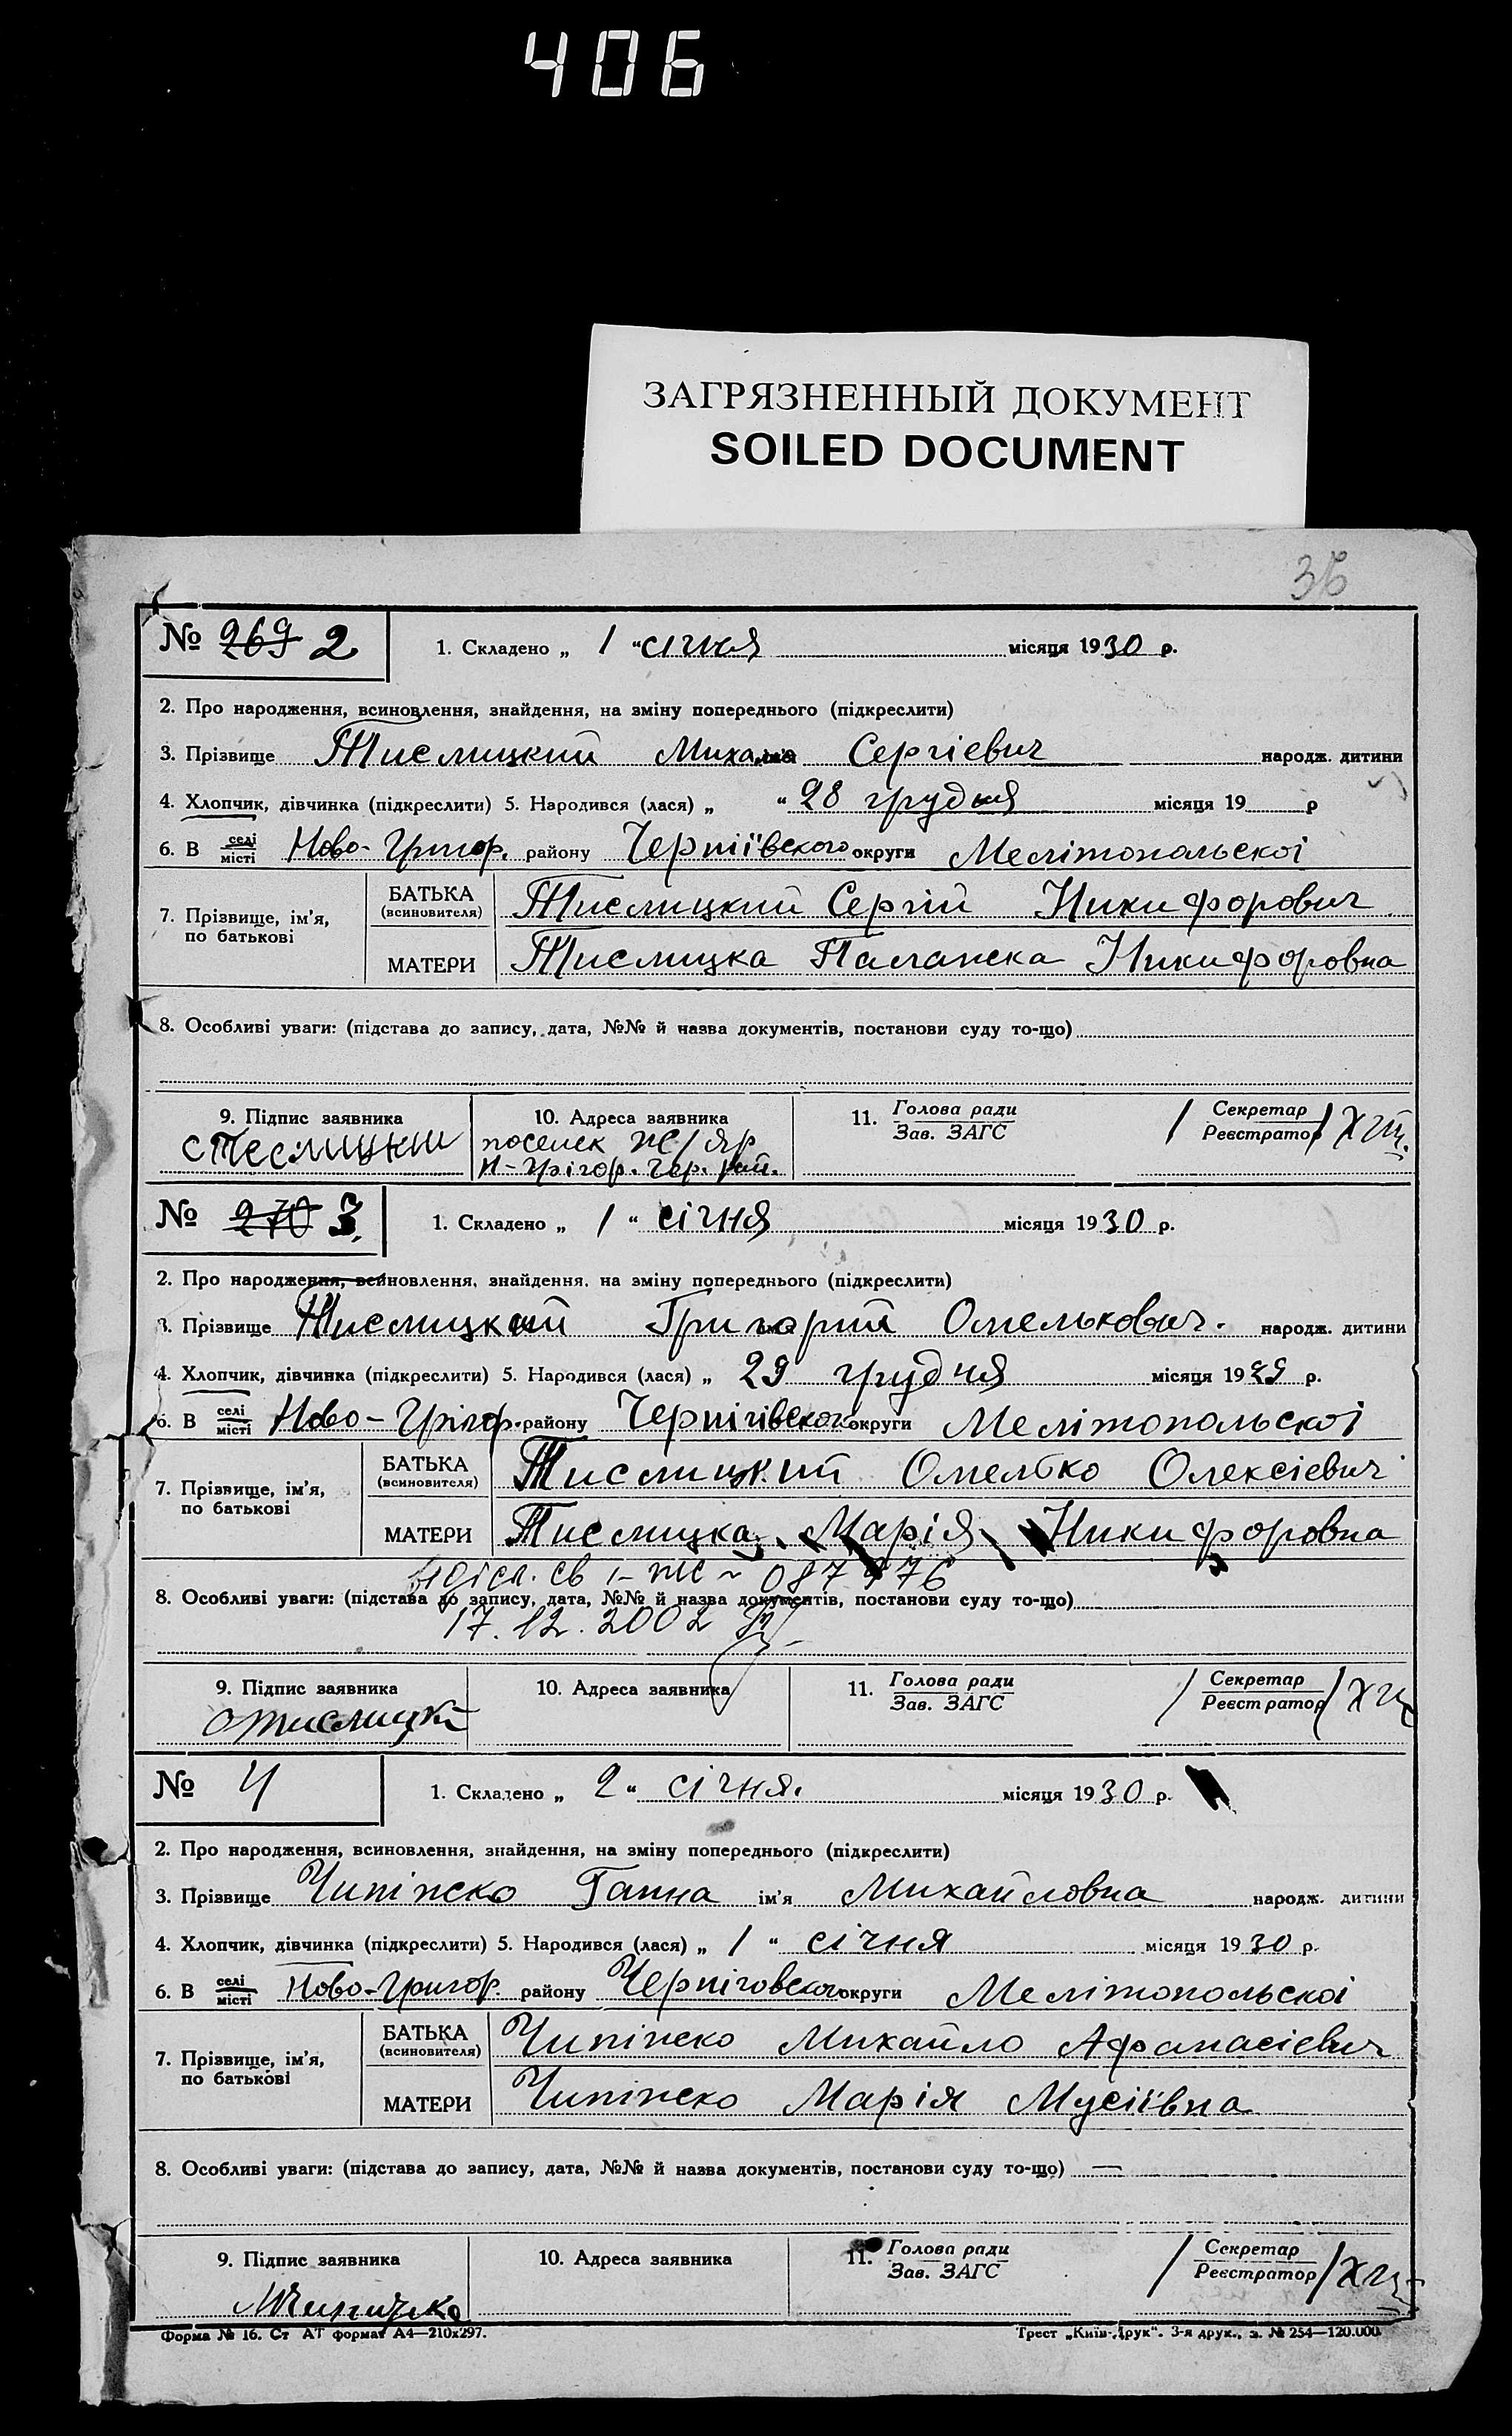 406
ЗАГРЯЗНЕННЫЙ ДОКУМЕНТ
SOILED DOCUMENT
№ 269 2 1. Складено „ 1 “ січня місяця 1930 р.
2. Про народження, всиновлення, знайдення, на зміну попереднього (підкреслити)
3. Прізвище Тислицкий Михаил Сергіевич народж. дитини
4. Хлопчик, дівчинка (підкреслити) 5. Народився (лася) „ “ 28 грудня місяця 19 р
6. В селі місті Ново-Григор. району округи Мелітопольскоі
7. Прізвище, ім’я, по батькові БАТЬКА (всиновителя) Тислицкий Сергій Никифорович
МАТЕРИ Тислицка Паланска Никифоровна
8. Особливі уваги: (підстава до запису, дата, №№ й назва документів, постанови суду то-що)
9. Підпис заявника 10. Адреса заявника 11. Голова ради Зав. ЗАГС / Секретар Реєстратор /
поселек
Н-Григор. Чер. рай.
№ 270 3. 1. Складено „ 1 “ січня місяця 1930 р.
2. Про народження, всиновлення, знайдення, на зміну попереднього (підкреслити)
3. Прізвище Тислицкий Григорий Омелькович. народж. дитини
4. Хлопчик, дівчинка (підкреслити) 5. Народився (лася) „ 29 грудня місяця 1929 р.
6. В селі місті Ново-Грігор. району Чернігівского округи Мелітопольскоі
7. Прізвище, ім’я, по батькові БАТЬКА (всиновителя) Тислицкий Омелько Олексієвич
МАТЕРИ Тислицка Марія Никифоровна
8. Особливі уваги: (підстава до запису, дата, №№ й назва документів, постанови суду то-що)
17.12.2002
9. Підпис заявника 10. Адреса заявника 11. Голова ради Зав. ЗАГС / Секретар Реєстратор /
№ 4 1. Складено „ 2 “ січня. місяця 1930 р.
2. Про народження, всиновлення, знайдення, на зміну попереднього (підкреслити)
3. Прізвище Чипінско Ганна ім’я Михайловна народж. дитини
4. Хлопчик, дівчинка (підкреслити) 5. Народився (лася) „ 1 “ січня місяця 1930 р.
6. В селі місті Ново-Григор. району Черніговского округи Мелітопольскоі
7. Прізвище, ім’я, по батькові БАТЬКА (всиновителя) Чипінско Михайло Афанасієвич
МАТЕРИ Чипінско Марія Мусіївна
8. Особливі уваги: (підстава до запису, дата, №№ й назва документів, постанови суду то-що) —
9. Підпис заявника 10. Адреса заявника 11. Голова ради Зав. ЗАГС / Секретар Реєстратор /
Форма № 16. Ст АТ формат А4—210х297. Трест „Київ-Друк“. 3-я друк., з. № 254—120.000